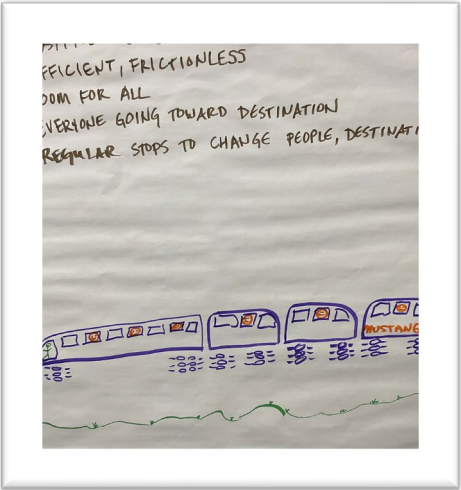 FFICIENT, FRICTIONLESS
OOM FOR ALL
EVERYONE GOING TOWARD DESTINATION
REGULAR STOPS TO CHANGE PEOPLE, DESTINATI
MUSTANG